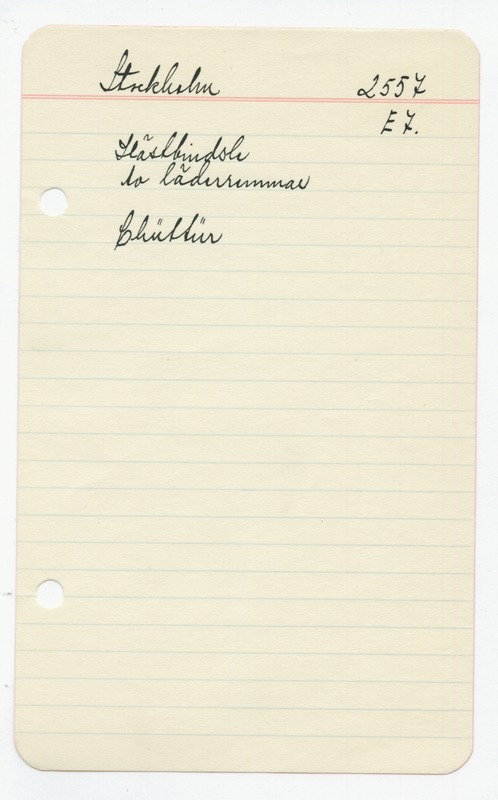 Stockholm 2557
E 7.
Hästbindsle
to läderremmar
Chüttür